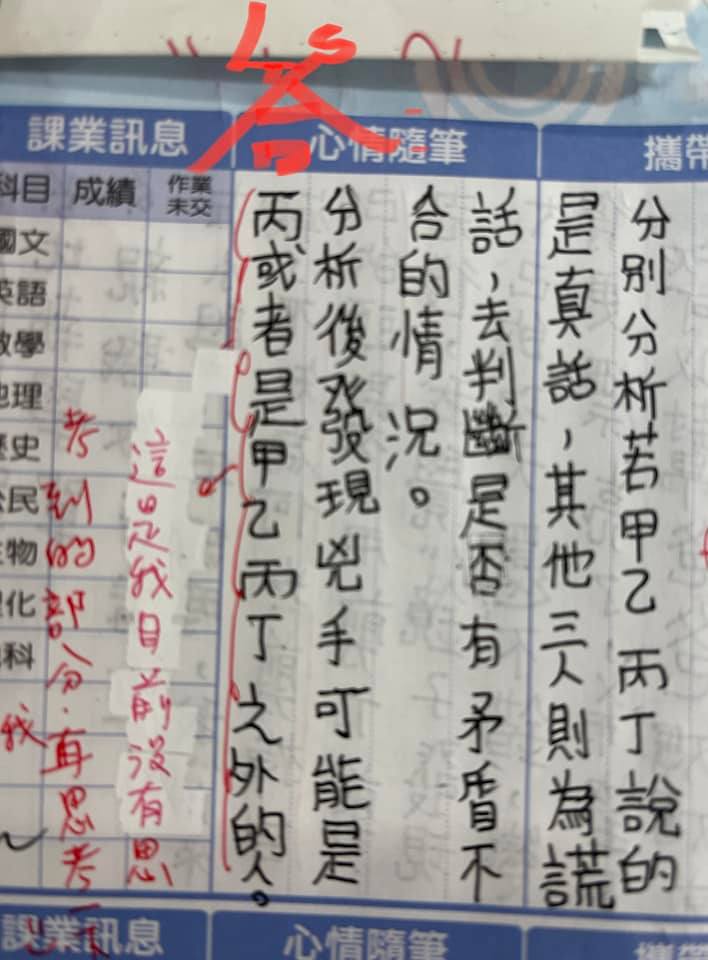 Ls
答
課業訊息
心情隨筆
攜帶
科目
成績
作業
未交
國文
英語
數學
地理
歷史
公民
生物
理化
分別分析若甲乙丙丁說的
是真話，其他三人則為謊
話，去判斷是否有矛盾不
合的情況。
分析後發現兇手可能是
丙或者是甲乙丙丁之外的人。
這是我目前沒有思
考到的部分.再思考一下
我
課業訊息
心情隨筆